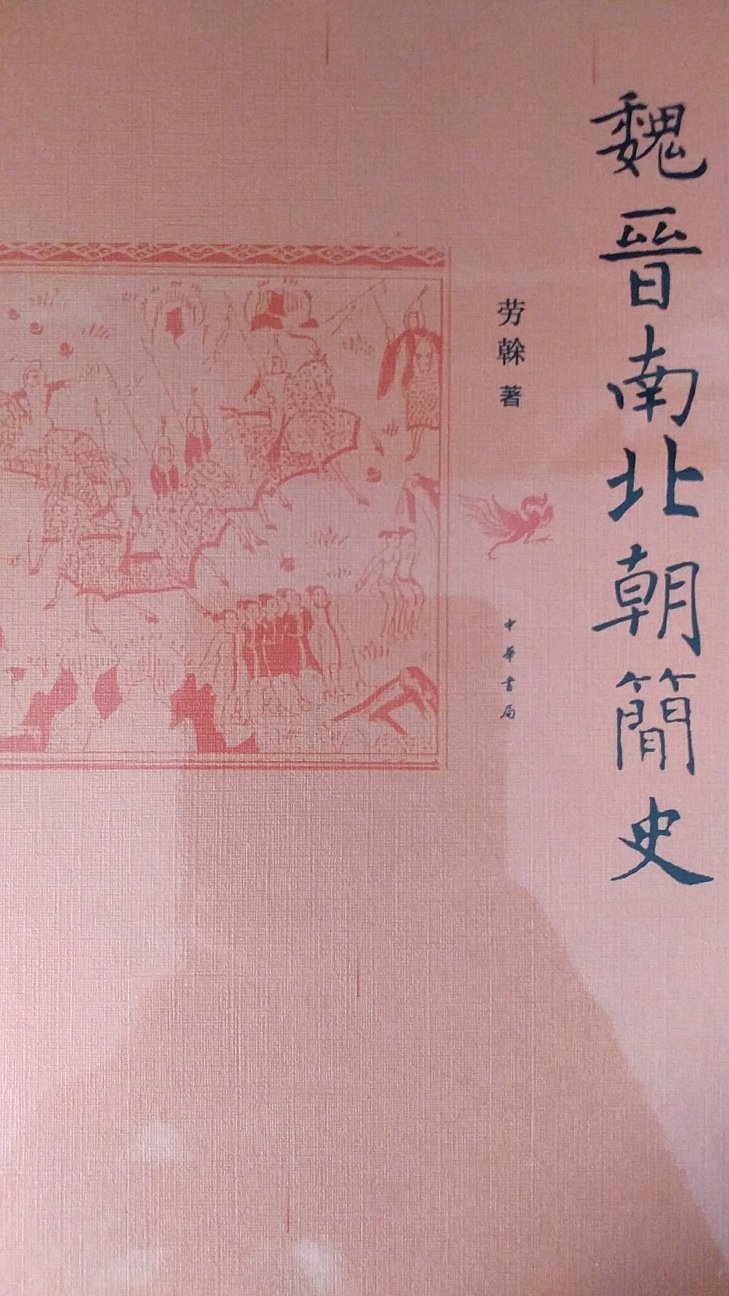 魏晉南北朝簡史
劳榦 著
中華書局